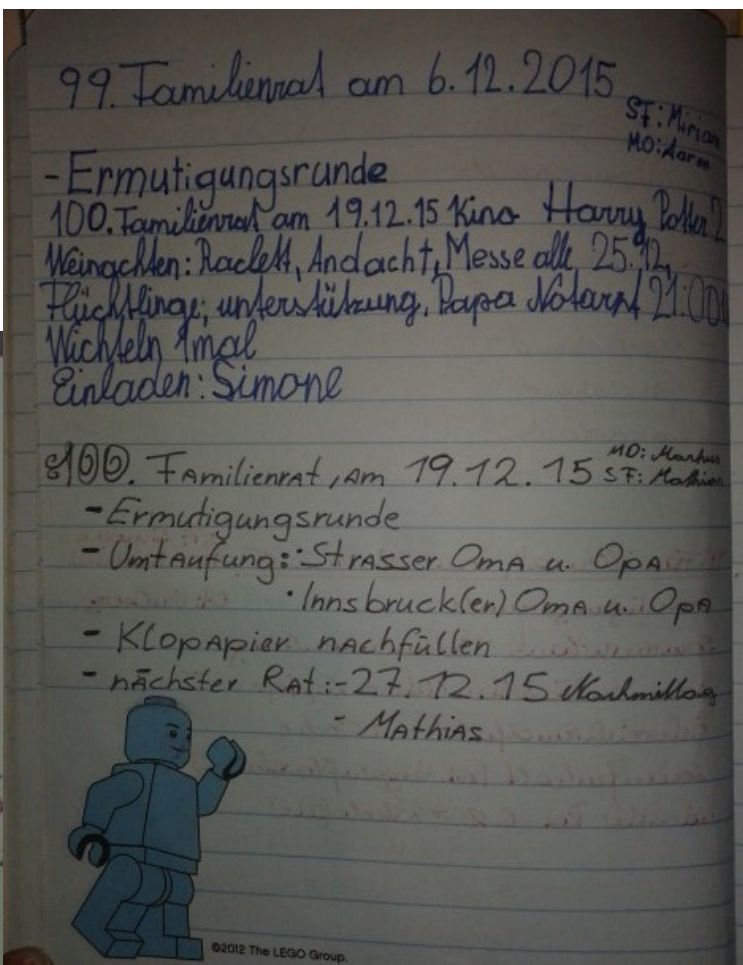 99. Familienrat am 6.12.2015
SF: Mirian
MO: Aaron
- Ermutigungsrunde
100. Familienrat am 19.12.15 Kino Harry Potter 2
Weinachten: Raclett, Andacht, Messe alle 25.12.
Flüchtlinge; unterstützung, Papa Notarzt 21:00
Wichteln 1mal
Einladen: Simone
100. Familienrat, am 19.12.15
MO: Markus
SF: Mathias
- Ermutigungsrunde
- Umtaufung: · Strasser Oma u. Opa
· Innsbruck(er) Oma u. Opa
- Klopapier nachfüllen
- nächster Rat: - 27.12.15 Nachmittag
- Mathias
©2012 The LEGO Group.